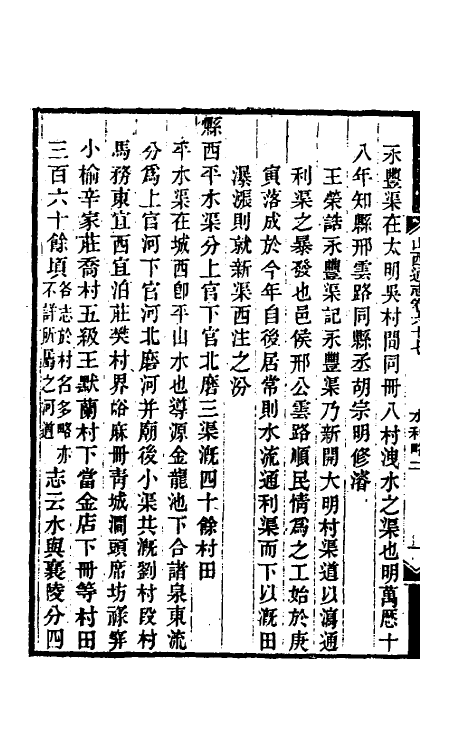 永豐渠在太明吳村間同冊八村洩水之渠也明萬厯十
八年知縣邢雲路同縣丞胡宗明修濬
王榮誥永豐渠記永豐渠乃新開大明村渠道以瀉通
利渠之暴發也邑侯邢公雲路順民情爲之工始於庚
寅落成於今年自後居常則水流通利渠而下以漑田
瀑漲則就新渠西注之汾
縣西平水渠分上官下官北磨三渠漑四十餘村田
平水渠在城西卽平山水也導源金龍池下合諸泉東流
分爲上官河下官河北磨河并廟後小渠共漑劉村段村
馬務東宜西宜泊莊樊村界峪麻冊靑城澗頭席坊祿
小榆辛家莊喬村五級王默蘭村下當金店下冊等村田
三百六十餘頃各志於村名多略亦不詳所爲之河道志云水與襄陵分四
山西通志卷六十七
水利略二